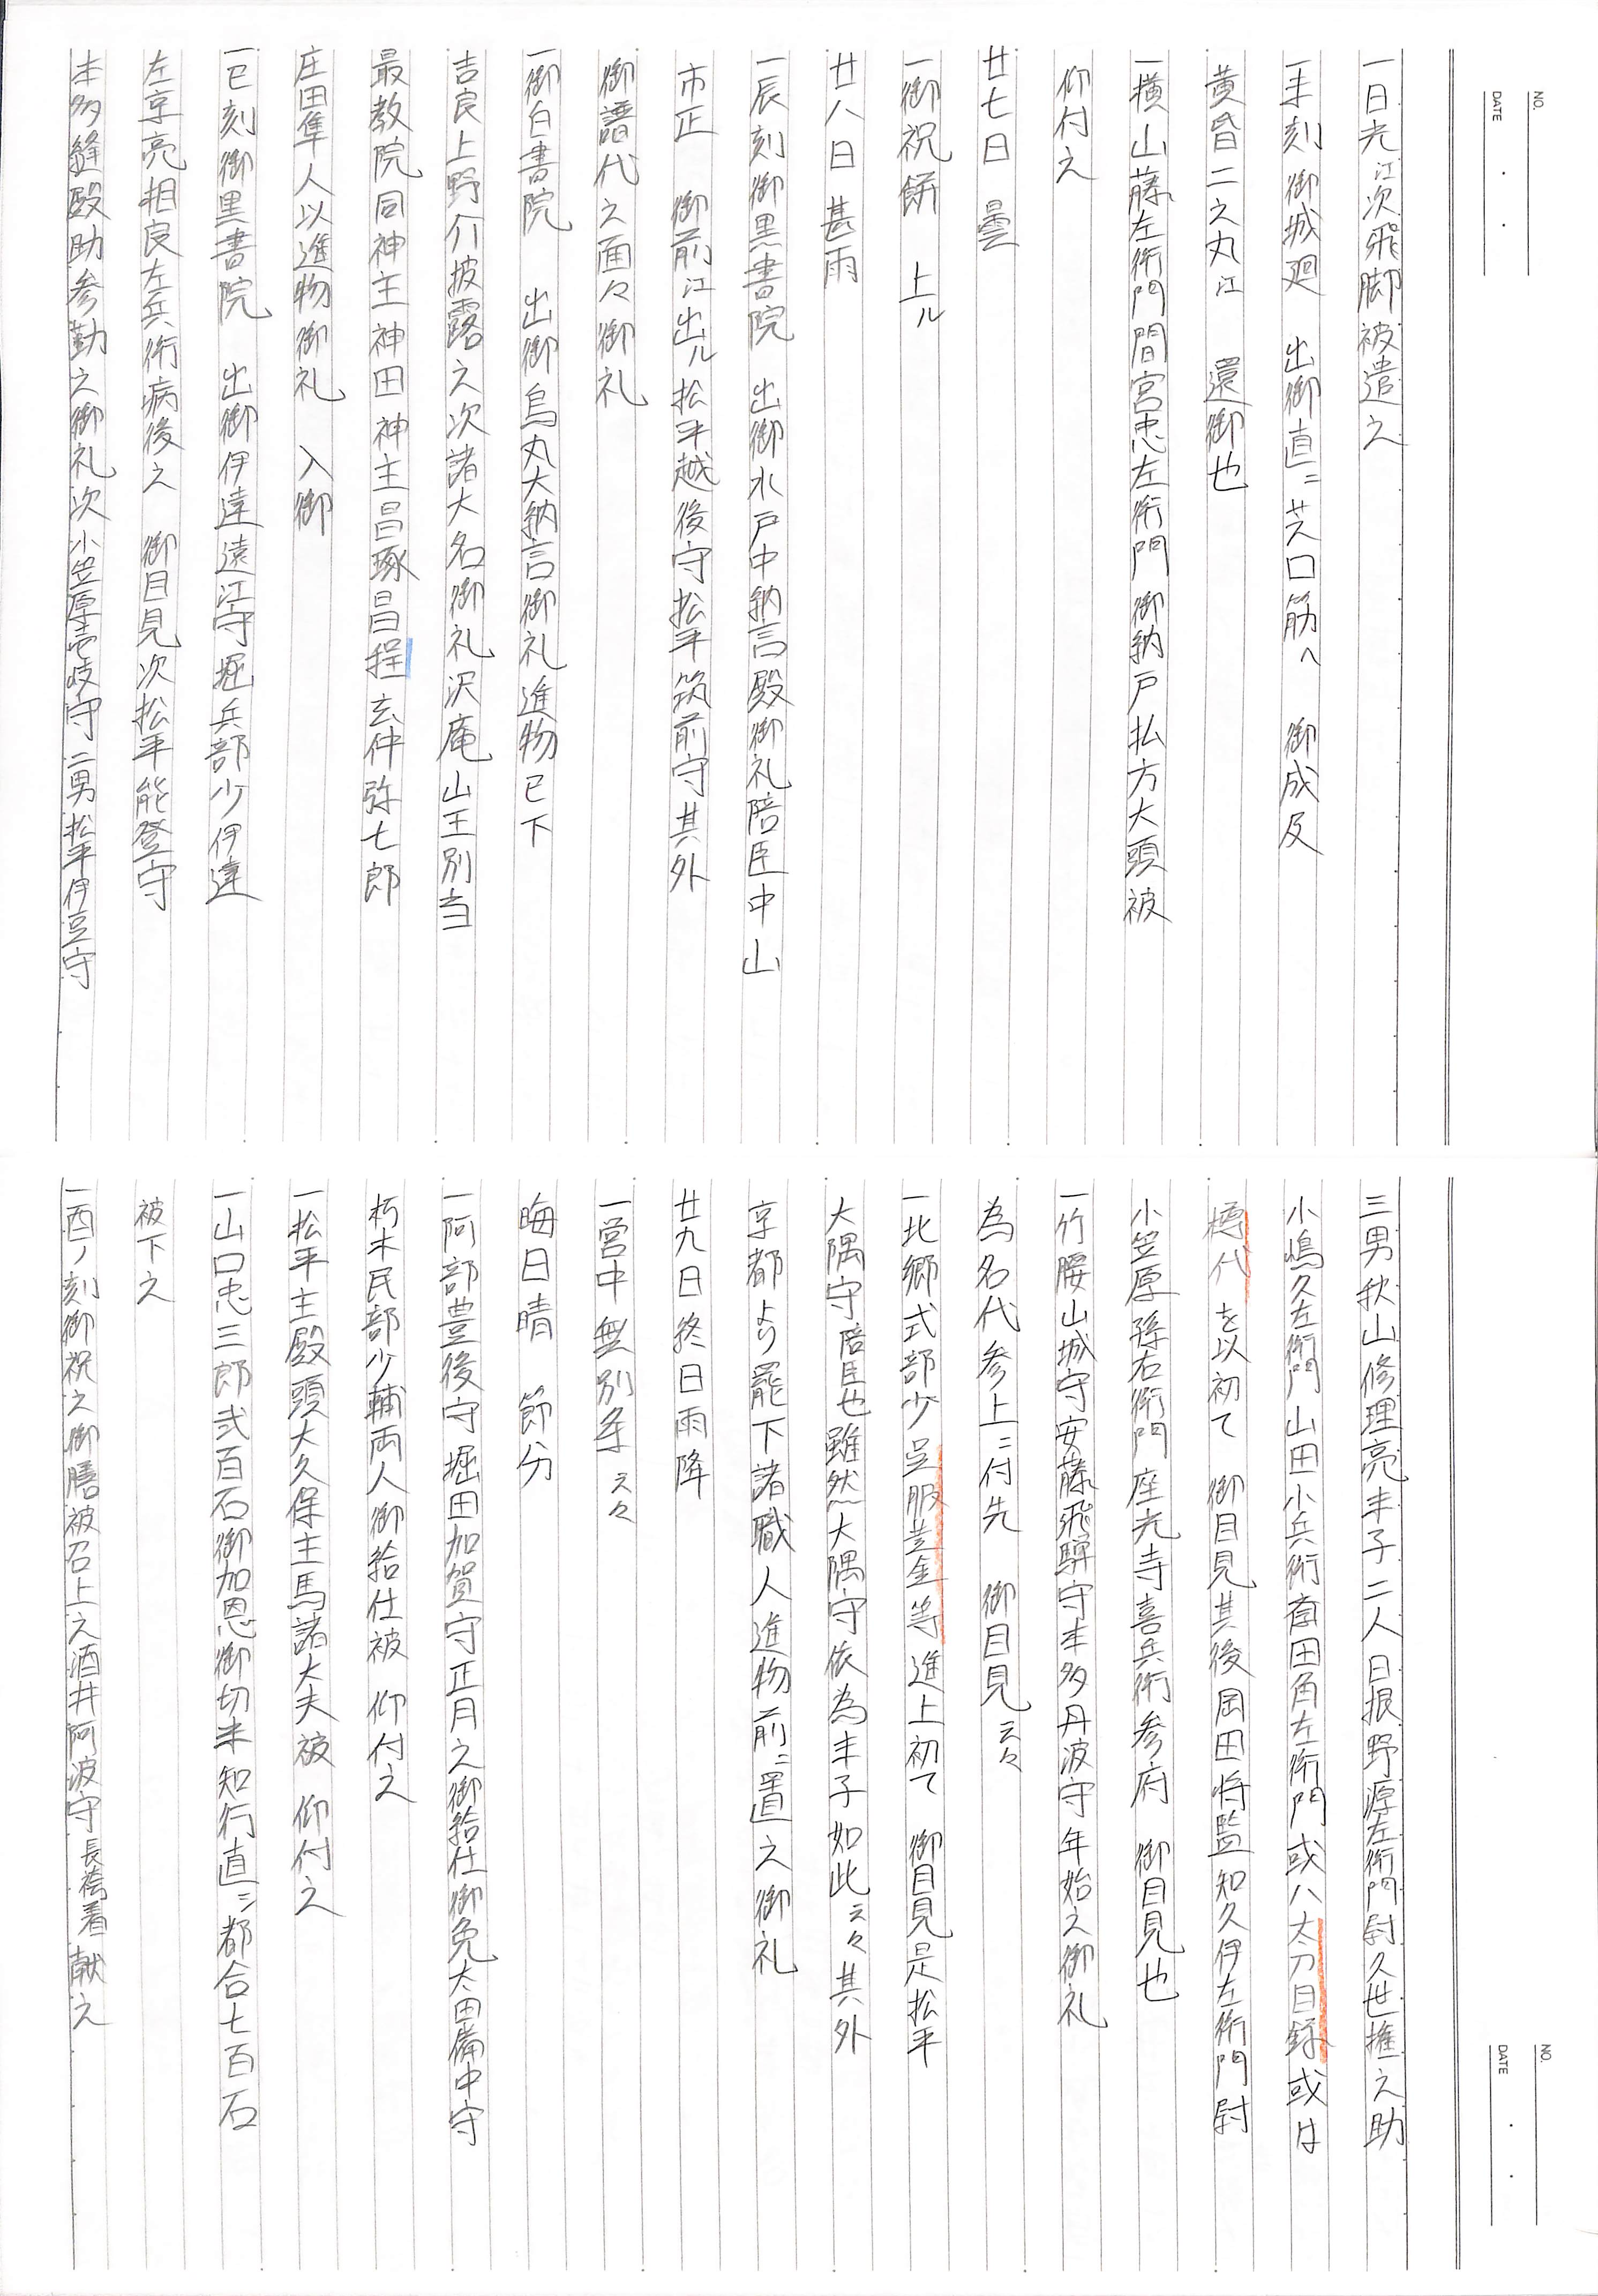 NO.
DATE
一日光江次飛脚被遣之
一未刻 御城廻 出御直ニ芝口筋へ 御成及
黄昏二之丸江 還御也
一横山藤左衛門間宮忠左衛門 御納戸払方大頭被
仰付之
廿七日 曇
一御祝餅 上ル
廿八日 甚雨
一辰刻御黒書院 出御水戸中納言殿御礼陪臣中山
市正 御前江出ル松平越後守松平筑前守其外
御譜代之面々御礼
一御白書院 出御烏丸大納言御礼進物已下
吉良上野介披露之次諸大名御礼沢庵山王別当
最教院同神主神田神主昌琢昌程玄仲弥七郎
庄田隼人以進物御礼 入御
一巳刻御黒書院 出御伊達遠江守堀兵部少伊達
左京亮相良左兵衛病後之 御目見次松平能登守
本多縫殿助参勤之御礼次小笠原壱岐守二男松平伊豆守
NO.
DATE
三男秋山修理亮末子二人日根野源左衛門尉久世権之助
小嶋久左衛門山田小兵衛斎田角左衛門或ハ太刀目録或は
樽代を以初て 御目見其後岡田将監知久伊左衛門尉
小笠原孫右衛門座光寺喜兵衛参府 御目見也
一竹腰山城守安藤飛騨守本多丹波守年始之御礼
為名代参上ニ付先 御目見云々
一北郷式部少呈服並金等進上初て 御目見是松平
大隅守陪臣也雖然大隅守依為末子如此云々其外
京都より罷下諸職人進物前ニ置之御礼
廿九日終日雨降
一営中無別条云々
晦日晴 節分
一阿部豊後守堀田加賀守正月之御給仕御免太田備中守
朽木民部少輔両人御給仕被 仰付之
一松平主殿頭大久保主馬諸大夫被 仰付之
一山口忠三郎弐百石御加恩御切米知行直ニ都合七百石
被下之
一酉ノ刻御祝之御膳被召上之酒井阿波守長袴着献之